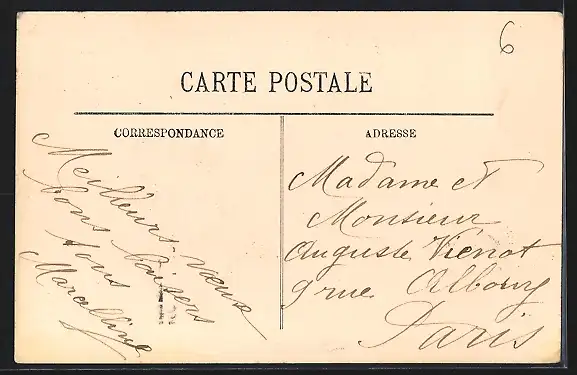 6
CARTE POSTALE
CORRESPONDANCE
Meilleurs vœux
bons baisers
tous
Marcelline
ADRESSE
Madame et
Monsieur
Auguste Viénot
9 rue Albouy
Paris